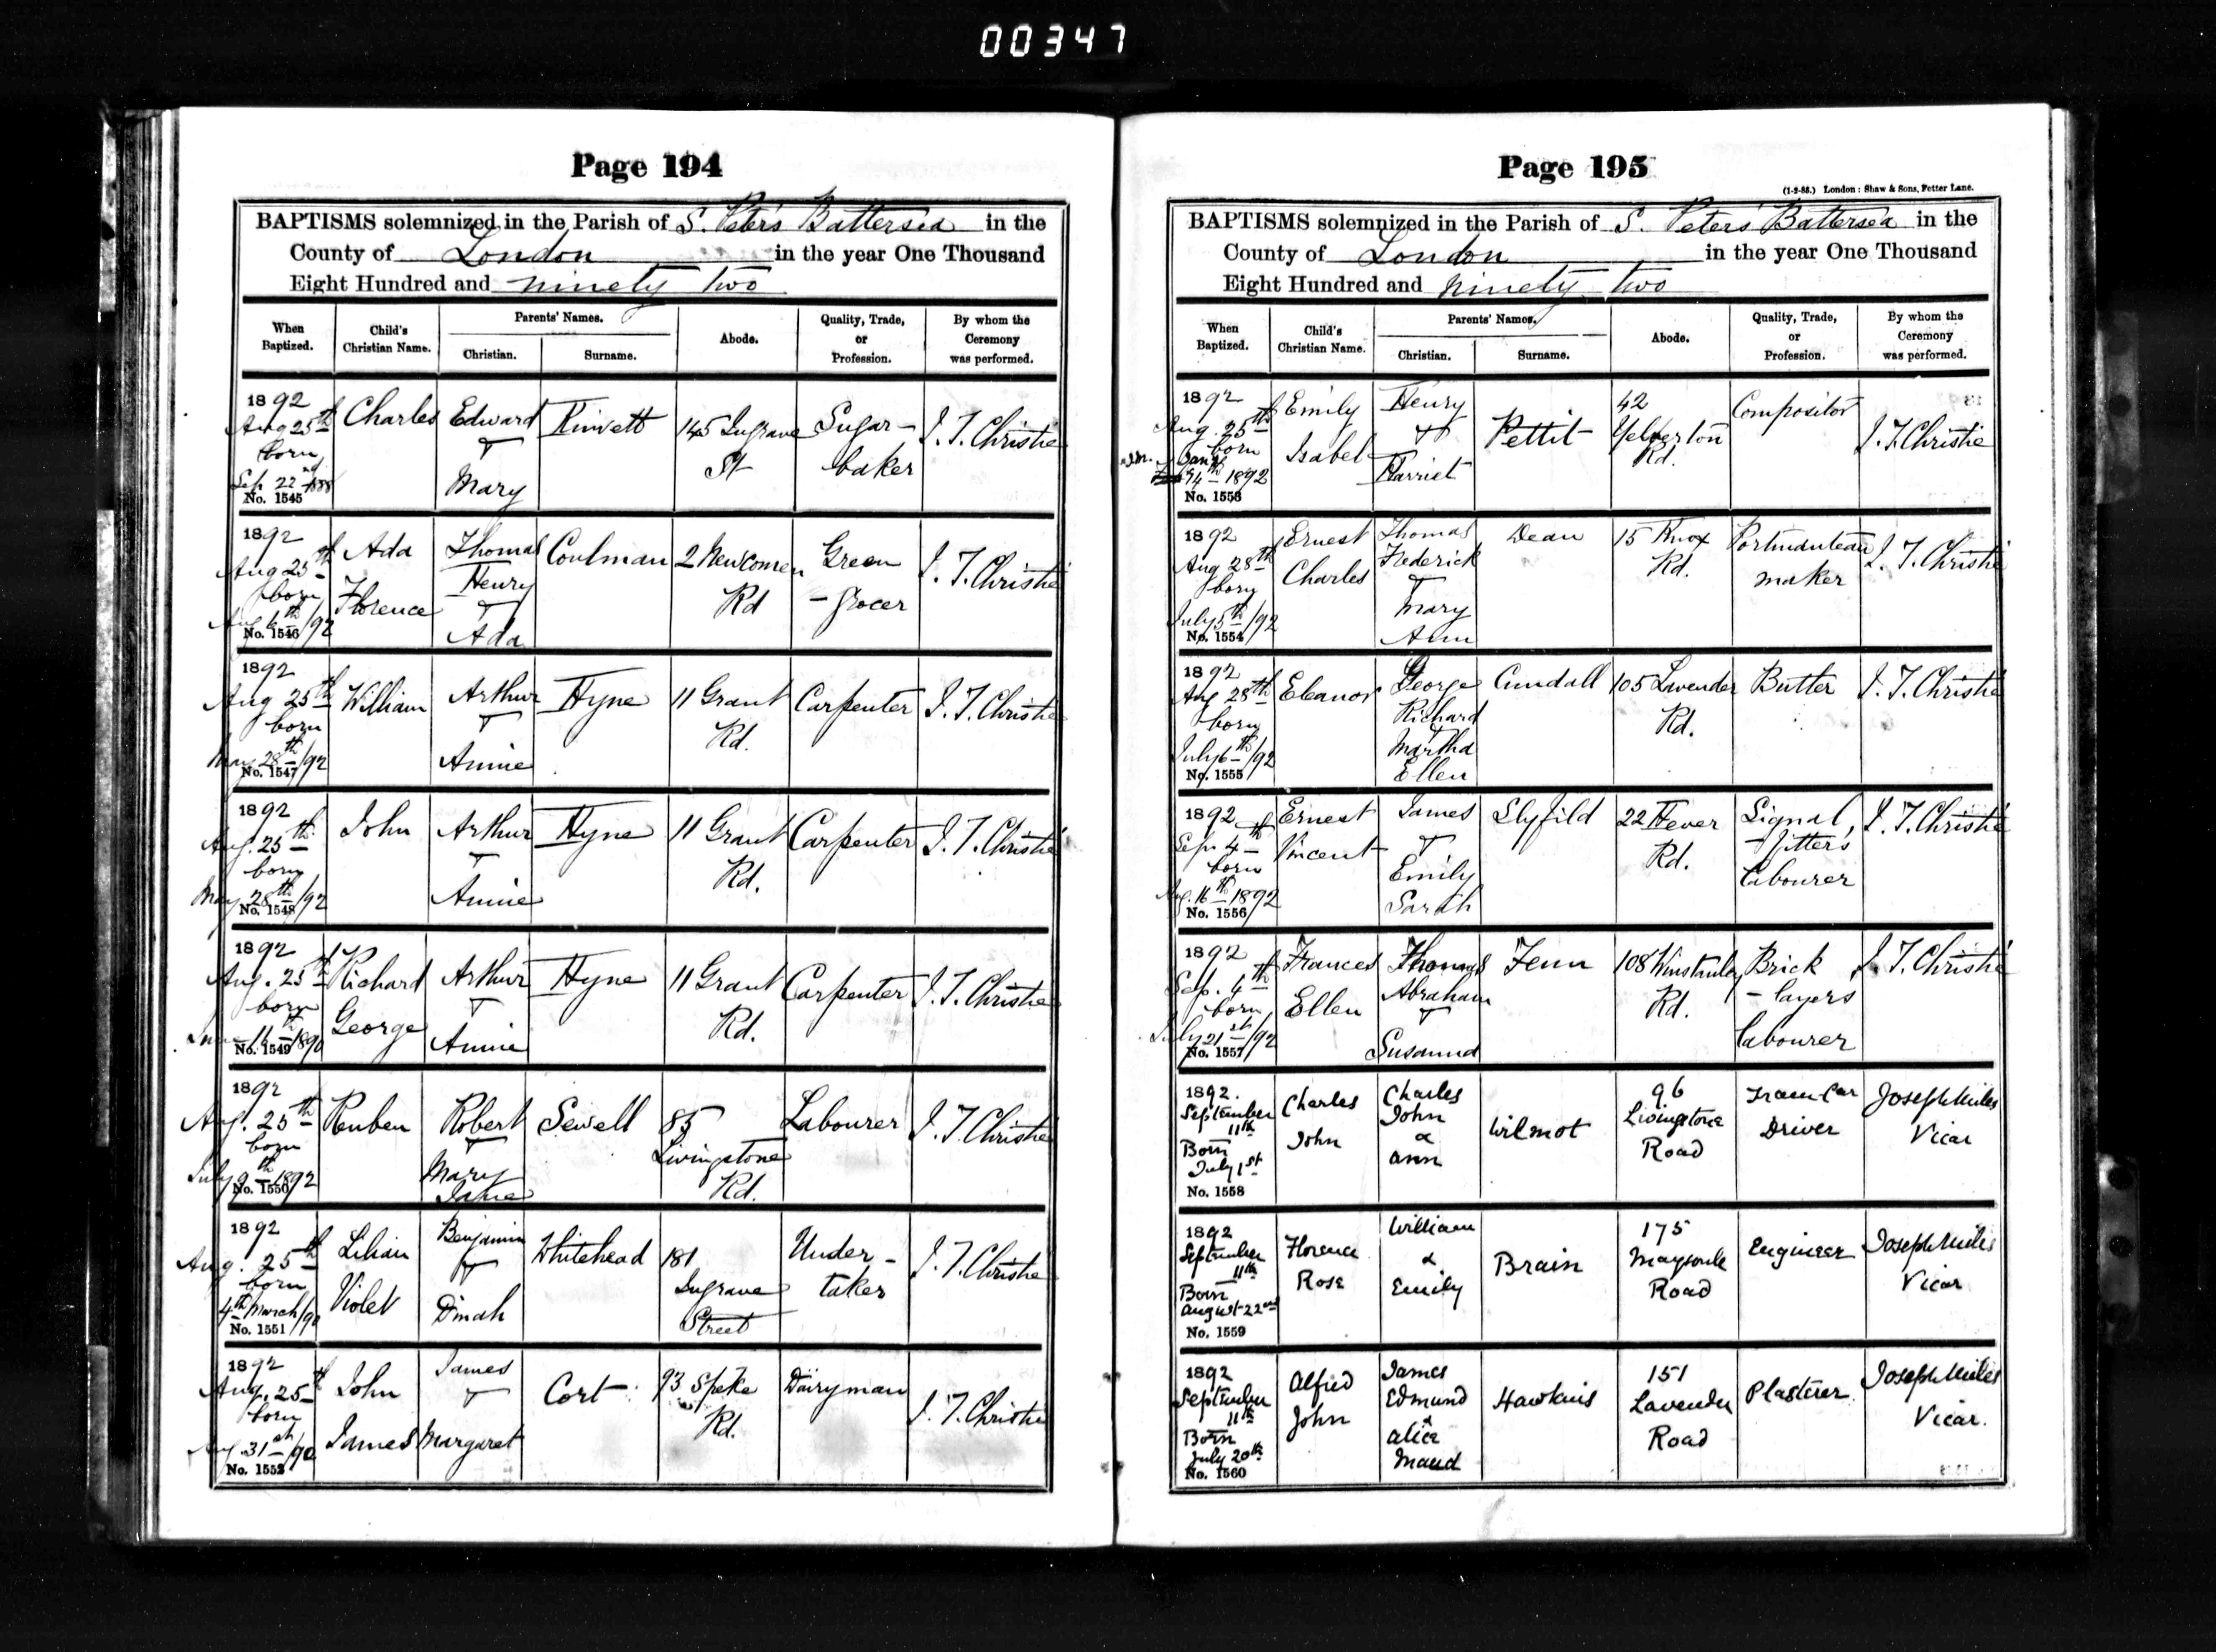 00347
Page 194
BAPTISMS solemnized in the Parish of S. Peter's Battersea in the
County of London in the year One Thousand
Eight Hundred and ninety two
When Baptized.
Child's Christian Name.
Parents' Names.
Christian.
Surname.
Abode.
Quality, Trade, or Profession.
By whom the Ceremony was performed.
1892 Aug 25th born Sep 22nd
No. 1545
Charles
Edward & Mary
145 Ingrave St
Sugar-baker
J. T. Christie
1892 Aug 25th born Aug 6th/92
No. 1546
Ada Florence
Thomas Henry & Ada
Coulman
2 Newcomen Rd
Green-grocer
J. T. Christie
1892 Aug 25th born May 28th/92
No. 1547
William
Arthur & Annie
Hyne
11 Grant Rd.
Carpenter
J. T. Christie
1892 Aug. 25th born May 28th/92
No. 1548
John
Arthur & Annie
Hyne
11 Grant Rd.
Carpenter
J. T. Christie
1892 Aug. 25th born 1890
No. 1549
Richard George
Arthur & Annie
Hyne
11 Grant Rd.
Carpenter
J. T. Christie
1892 Aug. 25th born July 9th 1892
No. 1550
Reuben
Robert & Mary Jane
Sewell
85 Livingstone Rd.
Labourer
J. T. Christie
1892 Aug. 25th born 4th March/90
No. 1551
Lilian Violet
Benjamin & Dinah
Whitehead
181 Ingrave Street
Under-taker
J. T. Christie
1892 Aug. 25th born Aug 31st/90
No. 1552
John James
James & Margaret
Cort
93 Speke Rd.
Dairyman
J. T. Christie
Page 195
(1-9-88.) London: Shaw & Sons, Fetter Lane.
BAPTISMS solemnized in the Parish of S. Peter's Battersea in the
County of London in the year One Thousand
Eight Hundred and ninety two
When Baptized.
Child's Christian Name.
Parents' Names.
Christian.
Surname.
Abode.
Quality, Trade, or Profession.
By whom the Ceremony was performed.
1892 Aug. 25th born 1892
No. 1553
Emily Isabel
Henry & Harriet
Pettit
42 Yelverton Rd.
Compositor
J. T. Christie
1892 Aug 28th born July 5th/92
No. 1554
Ernest Charles
Thomas Frederick & Mary Ann
Dean
15 Knox Rd.
Portmanteau maker
J. T. Christie
1892 Aug 28th born July 6th/92
No. 1555
Eleanor
George Richard & Martha Ellen
Cundall
105 Lavender Rd.
Butler
J. T. Christie
1892 Sep. 4th born Aug. 16th 1892
No. 1556
Ernest Vincent
James & Emily Sarah
Slyfild
22 Hever Rd.
Signal-fitter's labourer
J. T. Christie
1892 Sep. 4th born July 21st/92
No. 1557
Frances Ellen
Thomas Abraham & Susanna
Fenn
108 Winstanley Rd.
Brick-layers labourer
J. T. Christie
1892. September 11th Born July 1st
No. 1558
Charles John
Charles John & Ann
Wilmot
96 Livingstone Road
Tram Car Driver
Joseph Miles Vicar
1892 September 11th Born August 22nd
No. 1559
Florence Rose
William & Emily
Brain
175 Maysoule Road
Engineer
Joseph Miles Vicar
1892 September 11th Born July 20th
No. 1560
Alfred John
James Edmund & Alice Maud
Hawkins
151 Lavender Road
Plasterer
Joseph Miles Vicar.